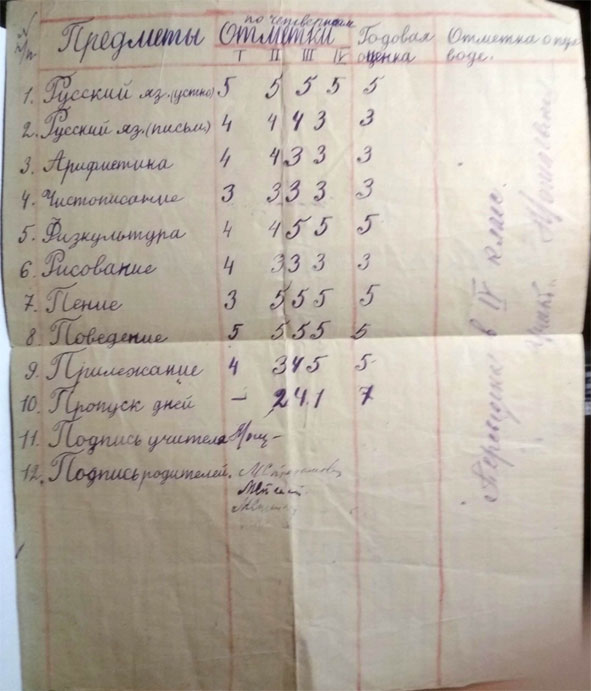 № п/п Предметы Отметки по четвертям Годовая оценка Отметка о переводе.
I II III IV
1. Русский яз. (устно) 5 5 5 5 5
2. Русский яз. (письм) 4 4 4 3 3
3. Арифметика 4 4 3 3 3
4. Чистописание 3 3 3 3 3
5. Физкультура 4 4 5 5 5
6. Рисование 4 3 3 3 3
7. Пение 3 5 5 5 5
8. Поведение 5 5 5 5 5
9. Прилежание 4 3 4 5 5
10. Пропуск дней - 2 4 1 7
11. Подпись учителя
12. Подпись родителей.
в IV класс.